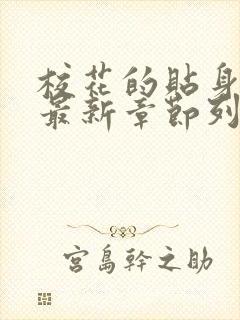 校花的貼身
最新章節列
宮島幹之助